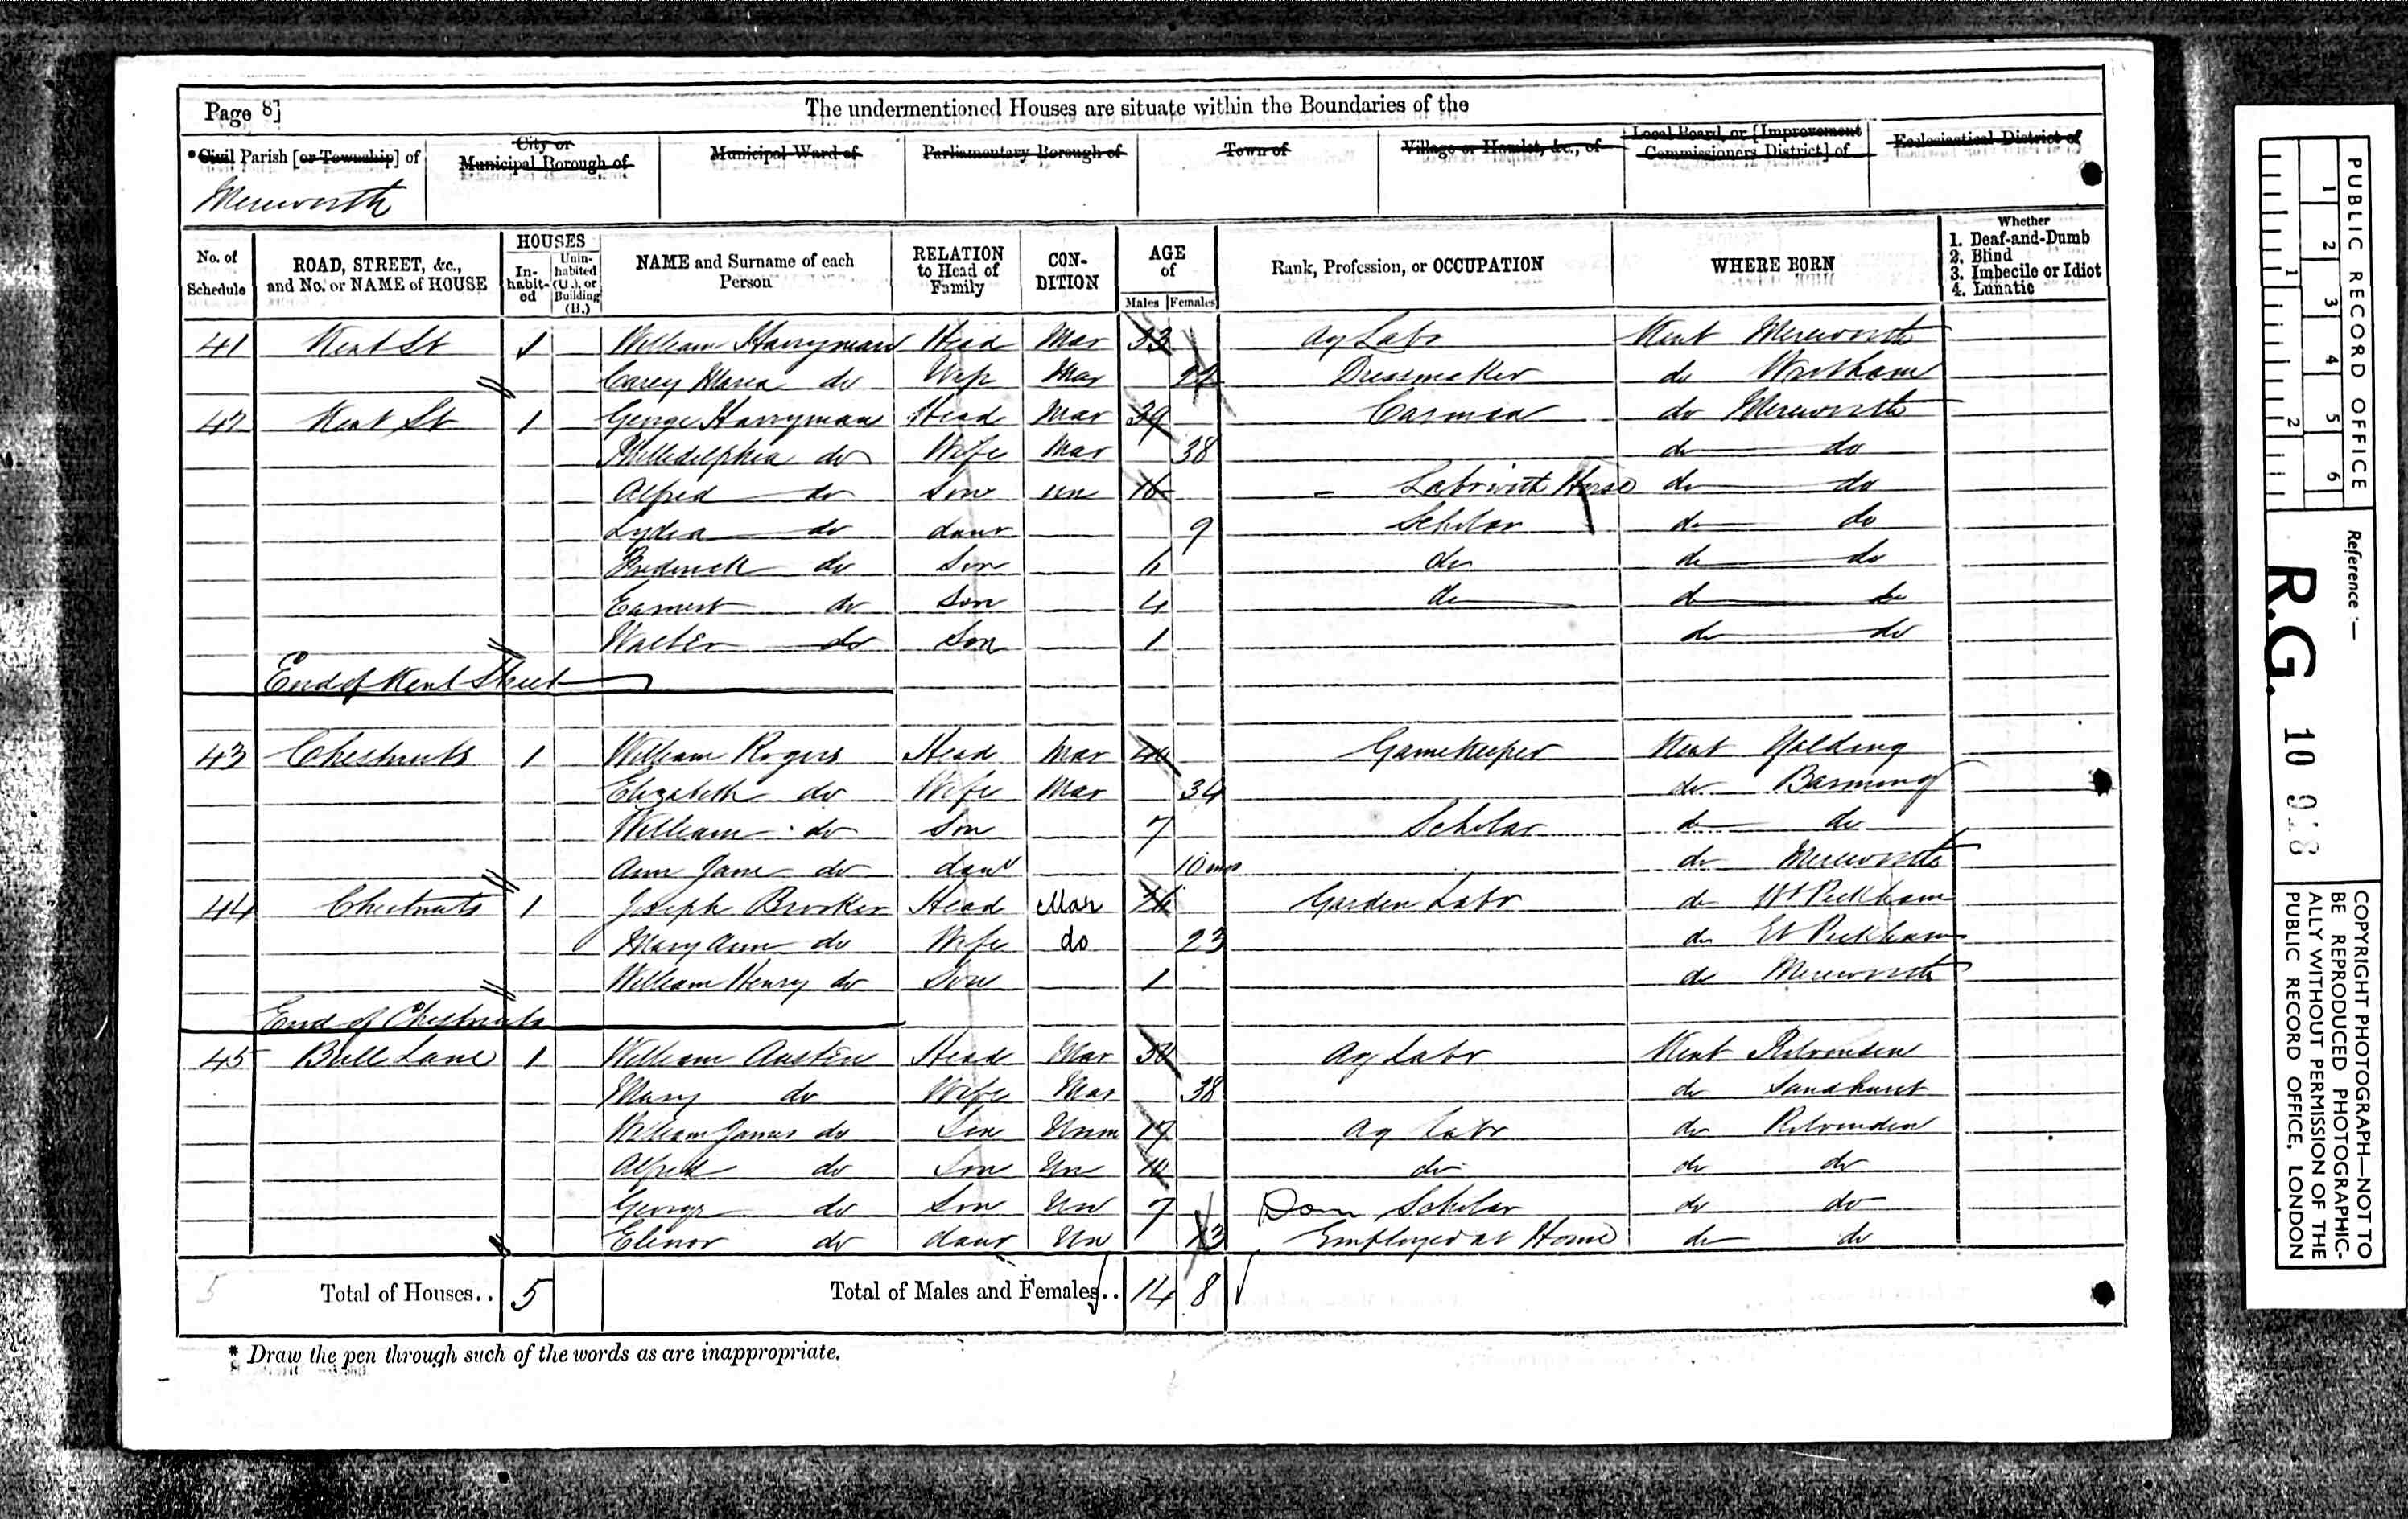 Page 8]
The undermentioned Houses are situate within the Boundaries of the
*Civil Parish [or Township] of
City or Municipal Borough of
Municipal Ward of
Parliamentary Borough of
Town of
Village or Hamlet, &c., of
Local Board, or [Improvement Commissioners District] of
Ecclesiastical District of
Mereworth
No. of Schedule
ROAD, STREET, &c., and No. or NAME of HOUSE
HOUSES
In-habit-ed
Unin-habited (U.), or Building (B.)
NAME and Surname of each Person
RELATION to Head of Family
CON-DITION
AGE of
Males Females
Rank, Profession, or OCCUPATION
WHERE BORN
Whether
1. Deaf-and-Dumb
2. Blind
3. Imbecile or Idiot
4. Lunatic
41 Kent St 1 William Harryman Head Mar 33 Ag Labr Kent Mereworth
Carey Maria do Wife Mar Dressmaker do Wrotham
42 Kent St 1 George Harryman Head Mar 39 Carman do Mereworth
Philledelphia do Wife Mar 38 do do
Alfred do Son un 16 Labr with Horse do do
Lydia do daur 9 Scholar do do
Frederick do Son 6 do do do
Earnest do Son 4 do do do
Walter do Son 1 do do
End of Kent Street
43 Chestnuts 1 William Rogers Head Mar Gamekeeper Kent Yalding
Elizabeth do Wife Mar 34 do Barming
William do Son 7 Scholar do do
Ann Jane do daur 10 mos do Mereworth
44 Chestnuts 1 Joseph Brooker Head Mar Garden Labr do Wt Peckham
Mary Ann do Wife do 23 do Et Peckham
William Henry do Son 1 do Mereworth
End of Chestnuts
45 Bull Lane 1 William Austin Head Mar Ag Labr Kent Rolvenden
Mary do Wife Mar 38 do Sandhurst
William James do Son Unm 17 Ag Labr do Rolvenden
Alfred do Son Un do do do
George do Son Un 7 Scholar do do
Elinor do daur Un 13 Employed at Home do do
5 Total of Houses.. 5 Total of Males and Females.. 14 8
* Draw the pen through such of the words as are inappropriate.
PUBLIC RECORD OFFICE
1 2 3 4 5 6
1 2
Reference:—
R.G. 10
COPYRIGHT PHOTOGRAPH—NOT TO BE REPRODUCED PHOTOGRAPHIC-ALLY WITHOUT PERMISSION OF THE PUBLIC RECORD OFFICE, LONDON